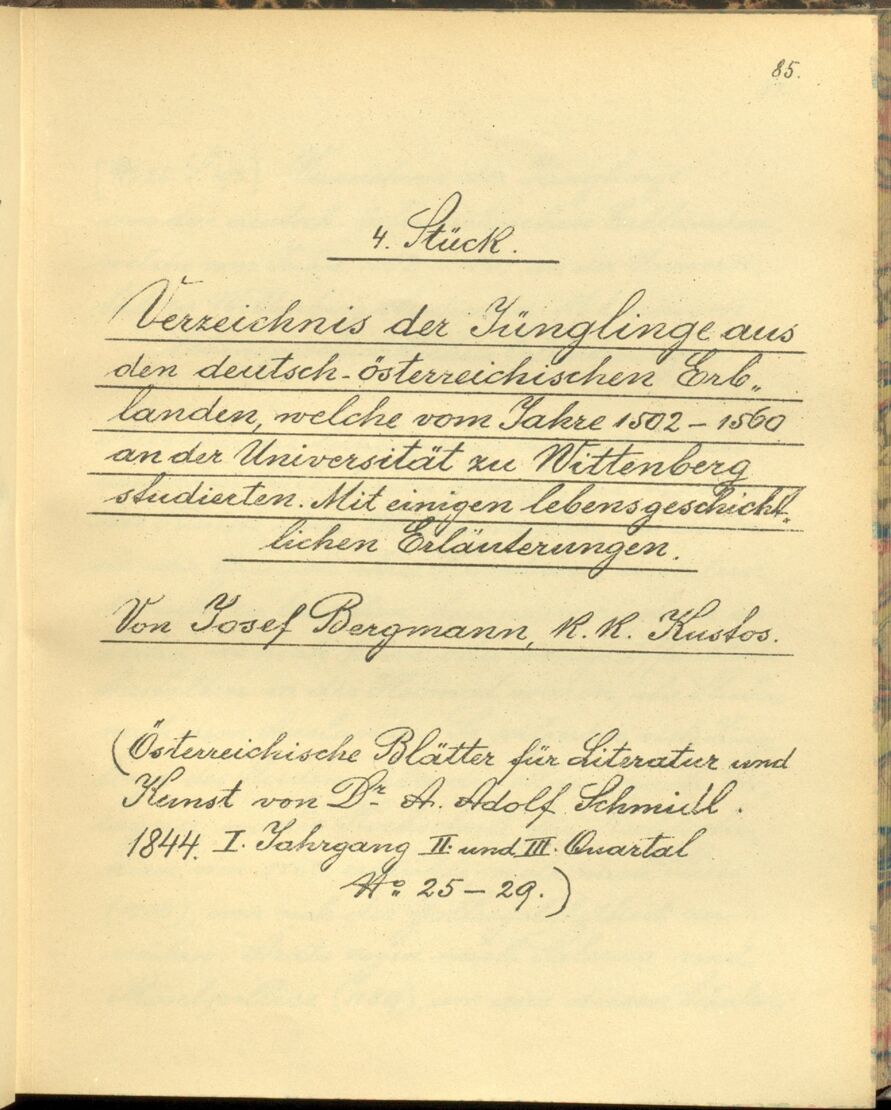 85.
4. Stück.
Verzeichnis der Jünglinge aus
den deutsch-österreichischen Erb„
landen, welche vom Jahre 1502 – 1560
an der Universität zu Wittenberg
studierten. Mit einigen lebensgeschicht„
lichen Erläuterungen.
Von Josef Bergmann, K. K. Kustos.
(Österreichische Blätter für Literatur und
Kunst von Dr. A. Adolf Schmidl.
1844. I. Jahrgang II. und III. Quartal
No 25 – 29.)